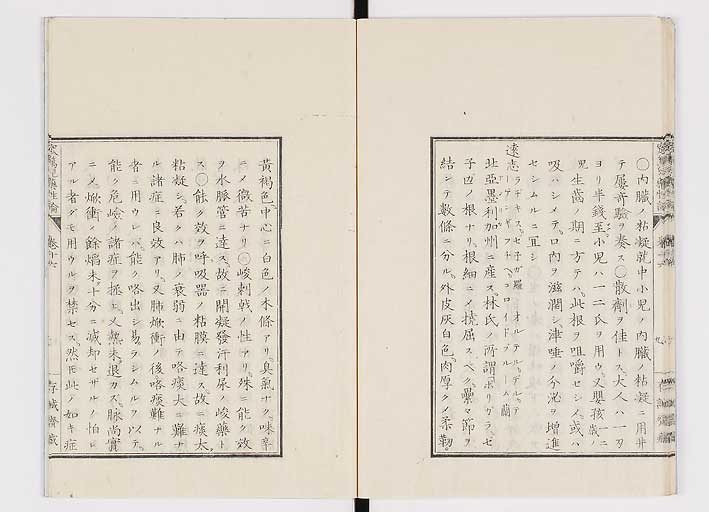 〇内臓ノ粘凝就中小児ノ内臓ノ粘凝ニ用井
テ屢奇験ヲ奏ス〇散剤ヲ佳トス大人ハ一刃
ヨリ半銭至小児ハ一二氏ヲ用ウ又嬰孩歳ノ一二
児生歯ノ期ニ方テハ此根ヲ咀嚼セシメ或ハ
吸ハシメテ口内ヲ滋潤シ津唾ノ分泌ヲ増進
セシムルニ宜シ
遠志
北亜墨利加州ニ産ス林氏ノ所謂ポリガラセ
子凹ノ根ナリ根細ニメ撓屈スベク纍々節ヲ
結ンテ数條ニ分ル外皮灰白色肉厚クメ柔靭
黄褐色中心ニ白色ノ木條アリ臭氣ナク味辛
ニメ微苦ナリ〇峻刺戟ノ性アリ殊ニ能ク效
ヲ水脈管ニ達ス故ニ開凝發汗利尿ノ峻藥ト
ス〇能ク效ヲ呼吸器ノ粘膜ニ達ス故ニ痰太
粘凝シ若クハ肺ノ衰弱ニ由テ咯痰大ニ難ナ
ル諸症ニ良效アリ又肺焮衝ノ後咯痰難ナル
者ニ用ウレバ能ク咯出シ易ラシムルヲ以テ
能ク危嶮ノ諸症ヲ拯
ニメ焮衝ノ餘焔未十分ニ減却セザルノ怕レ
アル者ダモ用ウルヲ禁セス然此ノ如キ症